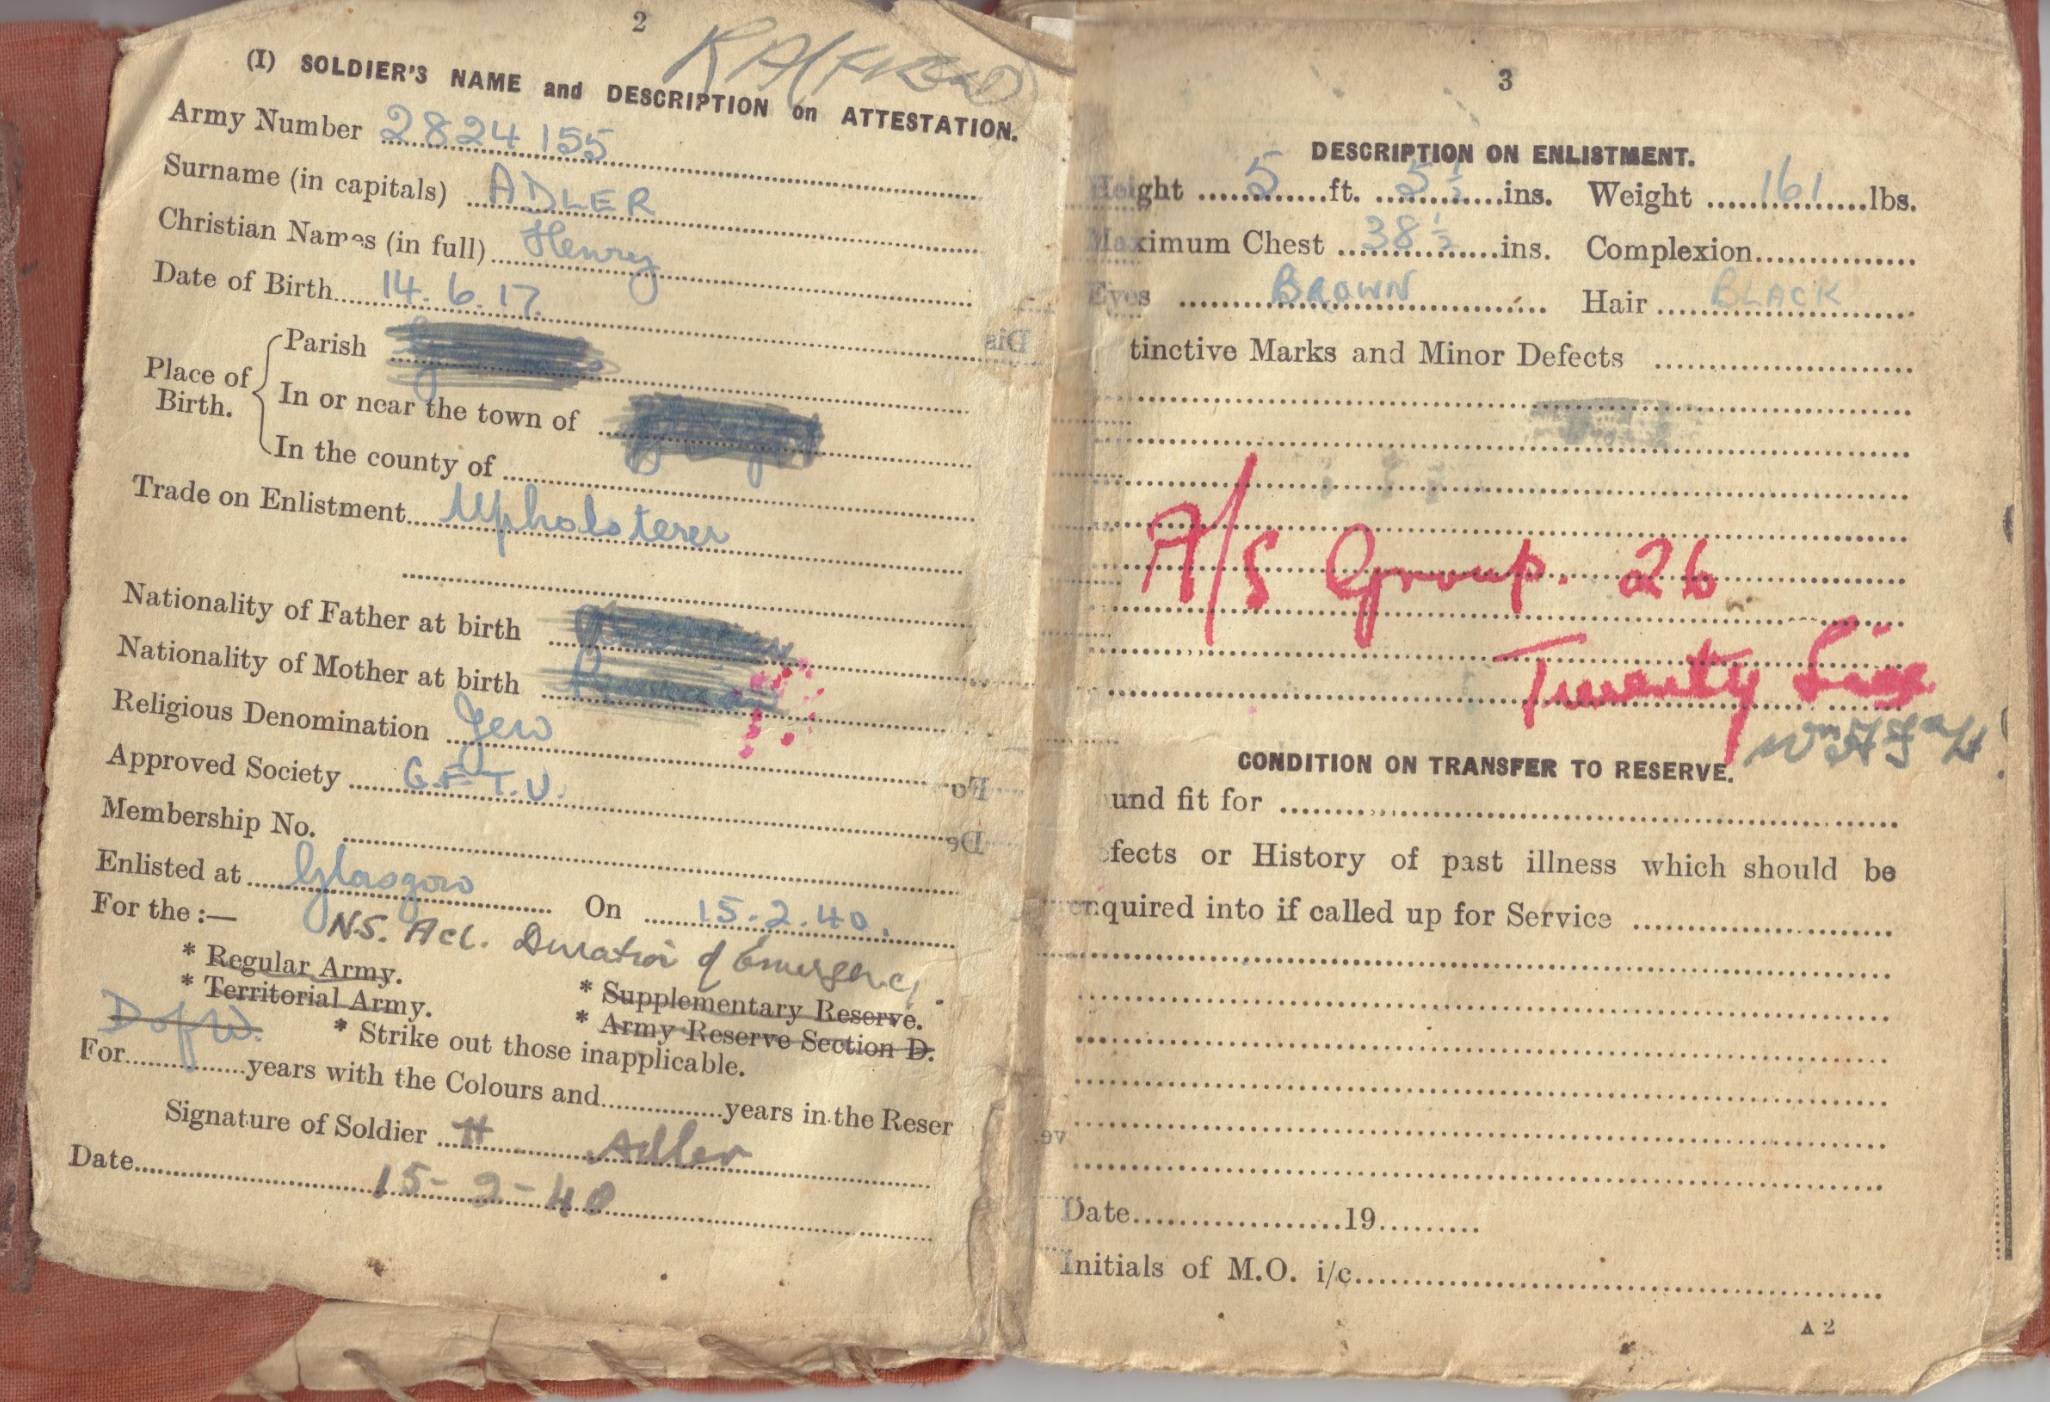 2
(I) SOLDIER'S NAME and DESCRIPTION on ATTESTATION.
Army Number 2824155
Surname (in capitals) ADLER
Christian Names (in full) Henry
Date of Birth 14.6.17.
Place of Birth.
Parish
In or near the town of
In the county of
Trade on Enlistment Upholsterer
Nationality of Father at birth
Nationality of Mother at birth
Religious Denomination Jew
Approved Society G.F.T.U.
Membership No.
Enlisted at Glasgow On 15.2.40.
For the :— N.S. Act. Duration of Emergency.
* Regular Army.
* Territorial Army.
* Supplementary Reserve.
* Army Reserve Section D.
D of W.
* Strike out those inapplicable.
For............years with the Colours and............years in the Reser
Signature of Soldier H Adler
Date 15-2-40
3
DESCRIPTION ON ENLISTMENT.
Height 5 ft. 5½ ins. Weight 161 lbs.
Maximum Chest 38½ ins. Complexion
Eyes BROWN Hair BLACK
tinctive Marks and Minor Defects
A/S Group. 26
Twenty Six
CONDITION ON TRANSFER TO RESERVE.
und fit for
efects or History of past illness which should be
enquired into if called up for Service
Date..................19.........
Initials of M.O. i/c
A 2